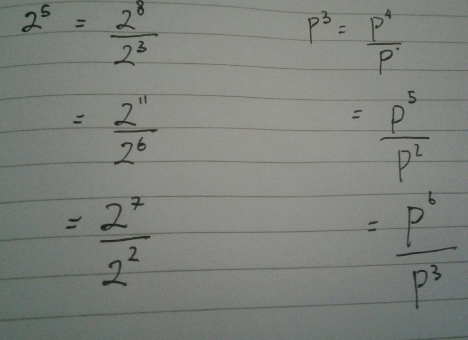 2⁵ = 2⁸/2³
= 2¹¹/2⁶
= 2⁷/2²
p³ = p⁴/p
= p⁵/p²
= p⁶/p³